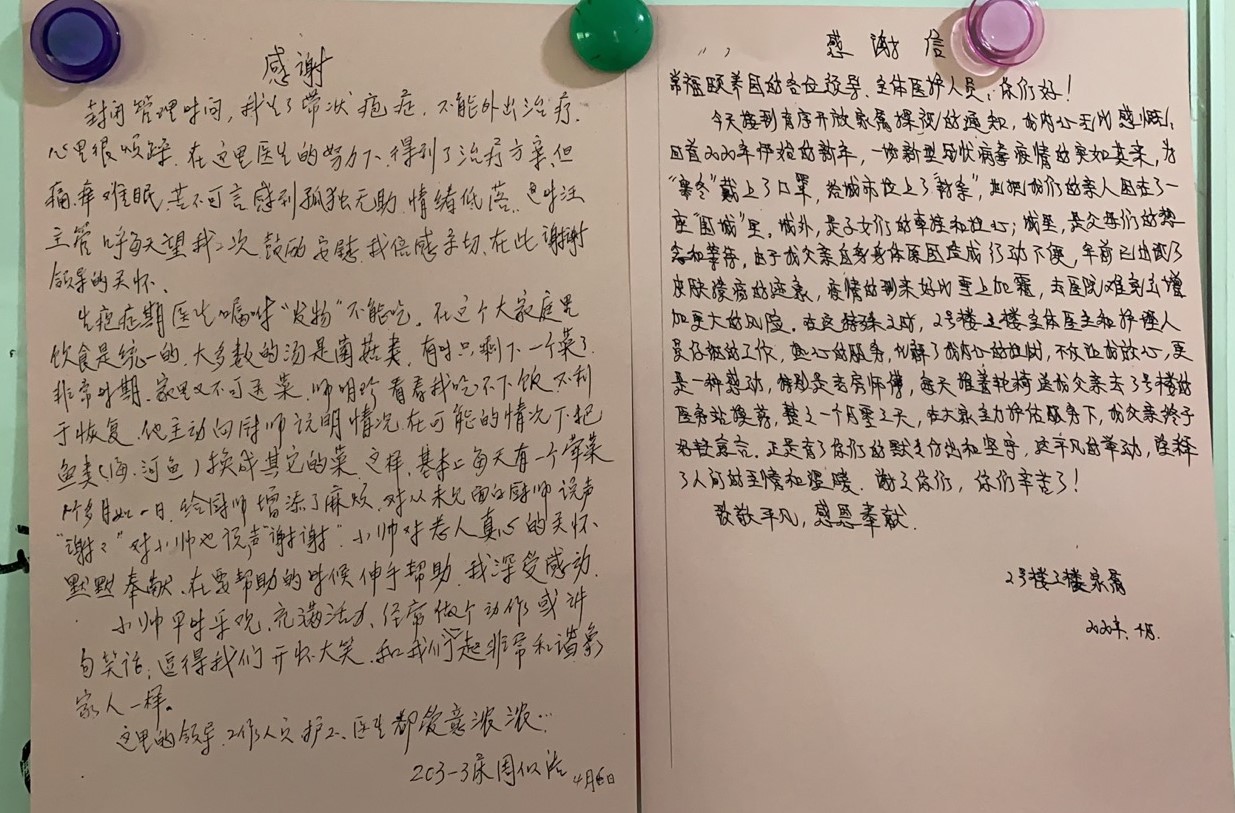 感谢
封闭管理时间,我生了带状疱症,不能外出治疗.
心里很烦躁.在这里医生的努力下、得到了治疗方案,但
痛、痒难眠、苦不可言感到孤独无助.情绪低落.
主管 每天望我二次鼓励安慰,我倍感亲切、在此谢谢
领导的关怀、
生疱症期医生嘱咐“发物”不能吃、在这个大家庭里
饮食是统一的、大多数的汤是菌菇类,有时只剩下一个菜了.
非常时期、家里又不可送菜、师明珍看看我吃不下饭、不利
于恢复、他主动向厨师说明情况,在可能的情况下把
鱼类(海、河鱼)换成其它的菜、这样,基本上每天有一个荤菜
个多月如一日、给厨师增添了麻烦、对从未见面的厨师说声
“谢々”对小帅也说声谢谢”.小帅对老人真心的关怀、
默默奉献、在要帮助的时候伸手帮助.我深受感动.
小帅平时乐观、充满活力、经常做个动作或讲
句笑话,逗得我们开怀大笑.和我们一起非常和谐象
家人一样。
这里的领导、工作人员、护工、医生都爱意浓浓…
203-3床周 4月6日
感谢信
常福颐养园的各位领导、全体医护人员,你们好!
今天接到有序开放家属探视的通知,我内心无比感慨,
回首2020年伊始的新年,一场新型冠状病毒疫情的突如其来,为
“寒冬”戴上了口罩,给城市拉上了封条”,也把我们的亲人困在了一
座“围城”里。城外,是子女们的牵挂和担心;城里,是父母们的想
念和等待。由于我父亲自身身体原因造成行动不便,年前已出现了
皮肤溃疡的迹象,疫情的到来好比雪上加霜,去医院难免会增
加更大的风险。在这特殊之时,2号楼 楼全体医生和护理人
员仔细的工作,热心的服务,化解了我内心的担忧,不仅让我放心,更
是一种感动,特别是 师傅,每天推着轮椅送我父亲去3号楼的
医务站换药,整整一个月零 天,在大家全力护估服务下,我父亲终于
痊愈。正是有了你们的默默付出和坚守,这平凡的举动,诠释
了人间的至情和温暖。谢谢你们,你们辛苦了!
致敬平凡,感恩奉献.
2号楼 楼家属
2020年.